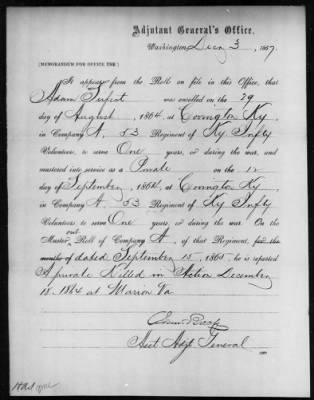 Adjutant General's Office,
Washington, Decr 3, 1867.
[MEMORANDUM FOR OFFICE USE.]
It appears from the Roll on file in this Office, that
Adam was enrolled on the 29
day of August, 1864, at Covington Ky,
in Company A, 53 Regiment of Ky Infty
Volunteers, to serve One years, or during the war, and
mustered into service as a Private on the 15
day of September, 1864, at Covington Ky,
in Company A, 53 Regiment of Ky Infty
Volunteers, to serve One years, or during the war. On the
out
Muster Roll of Company A, of that Regiment, for the
months of dated September 15, 1865, he is reported
A private Killed in Action December
18. 1864 at Marion Va
Asst Adjt General